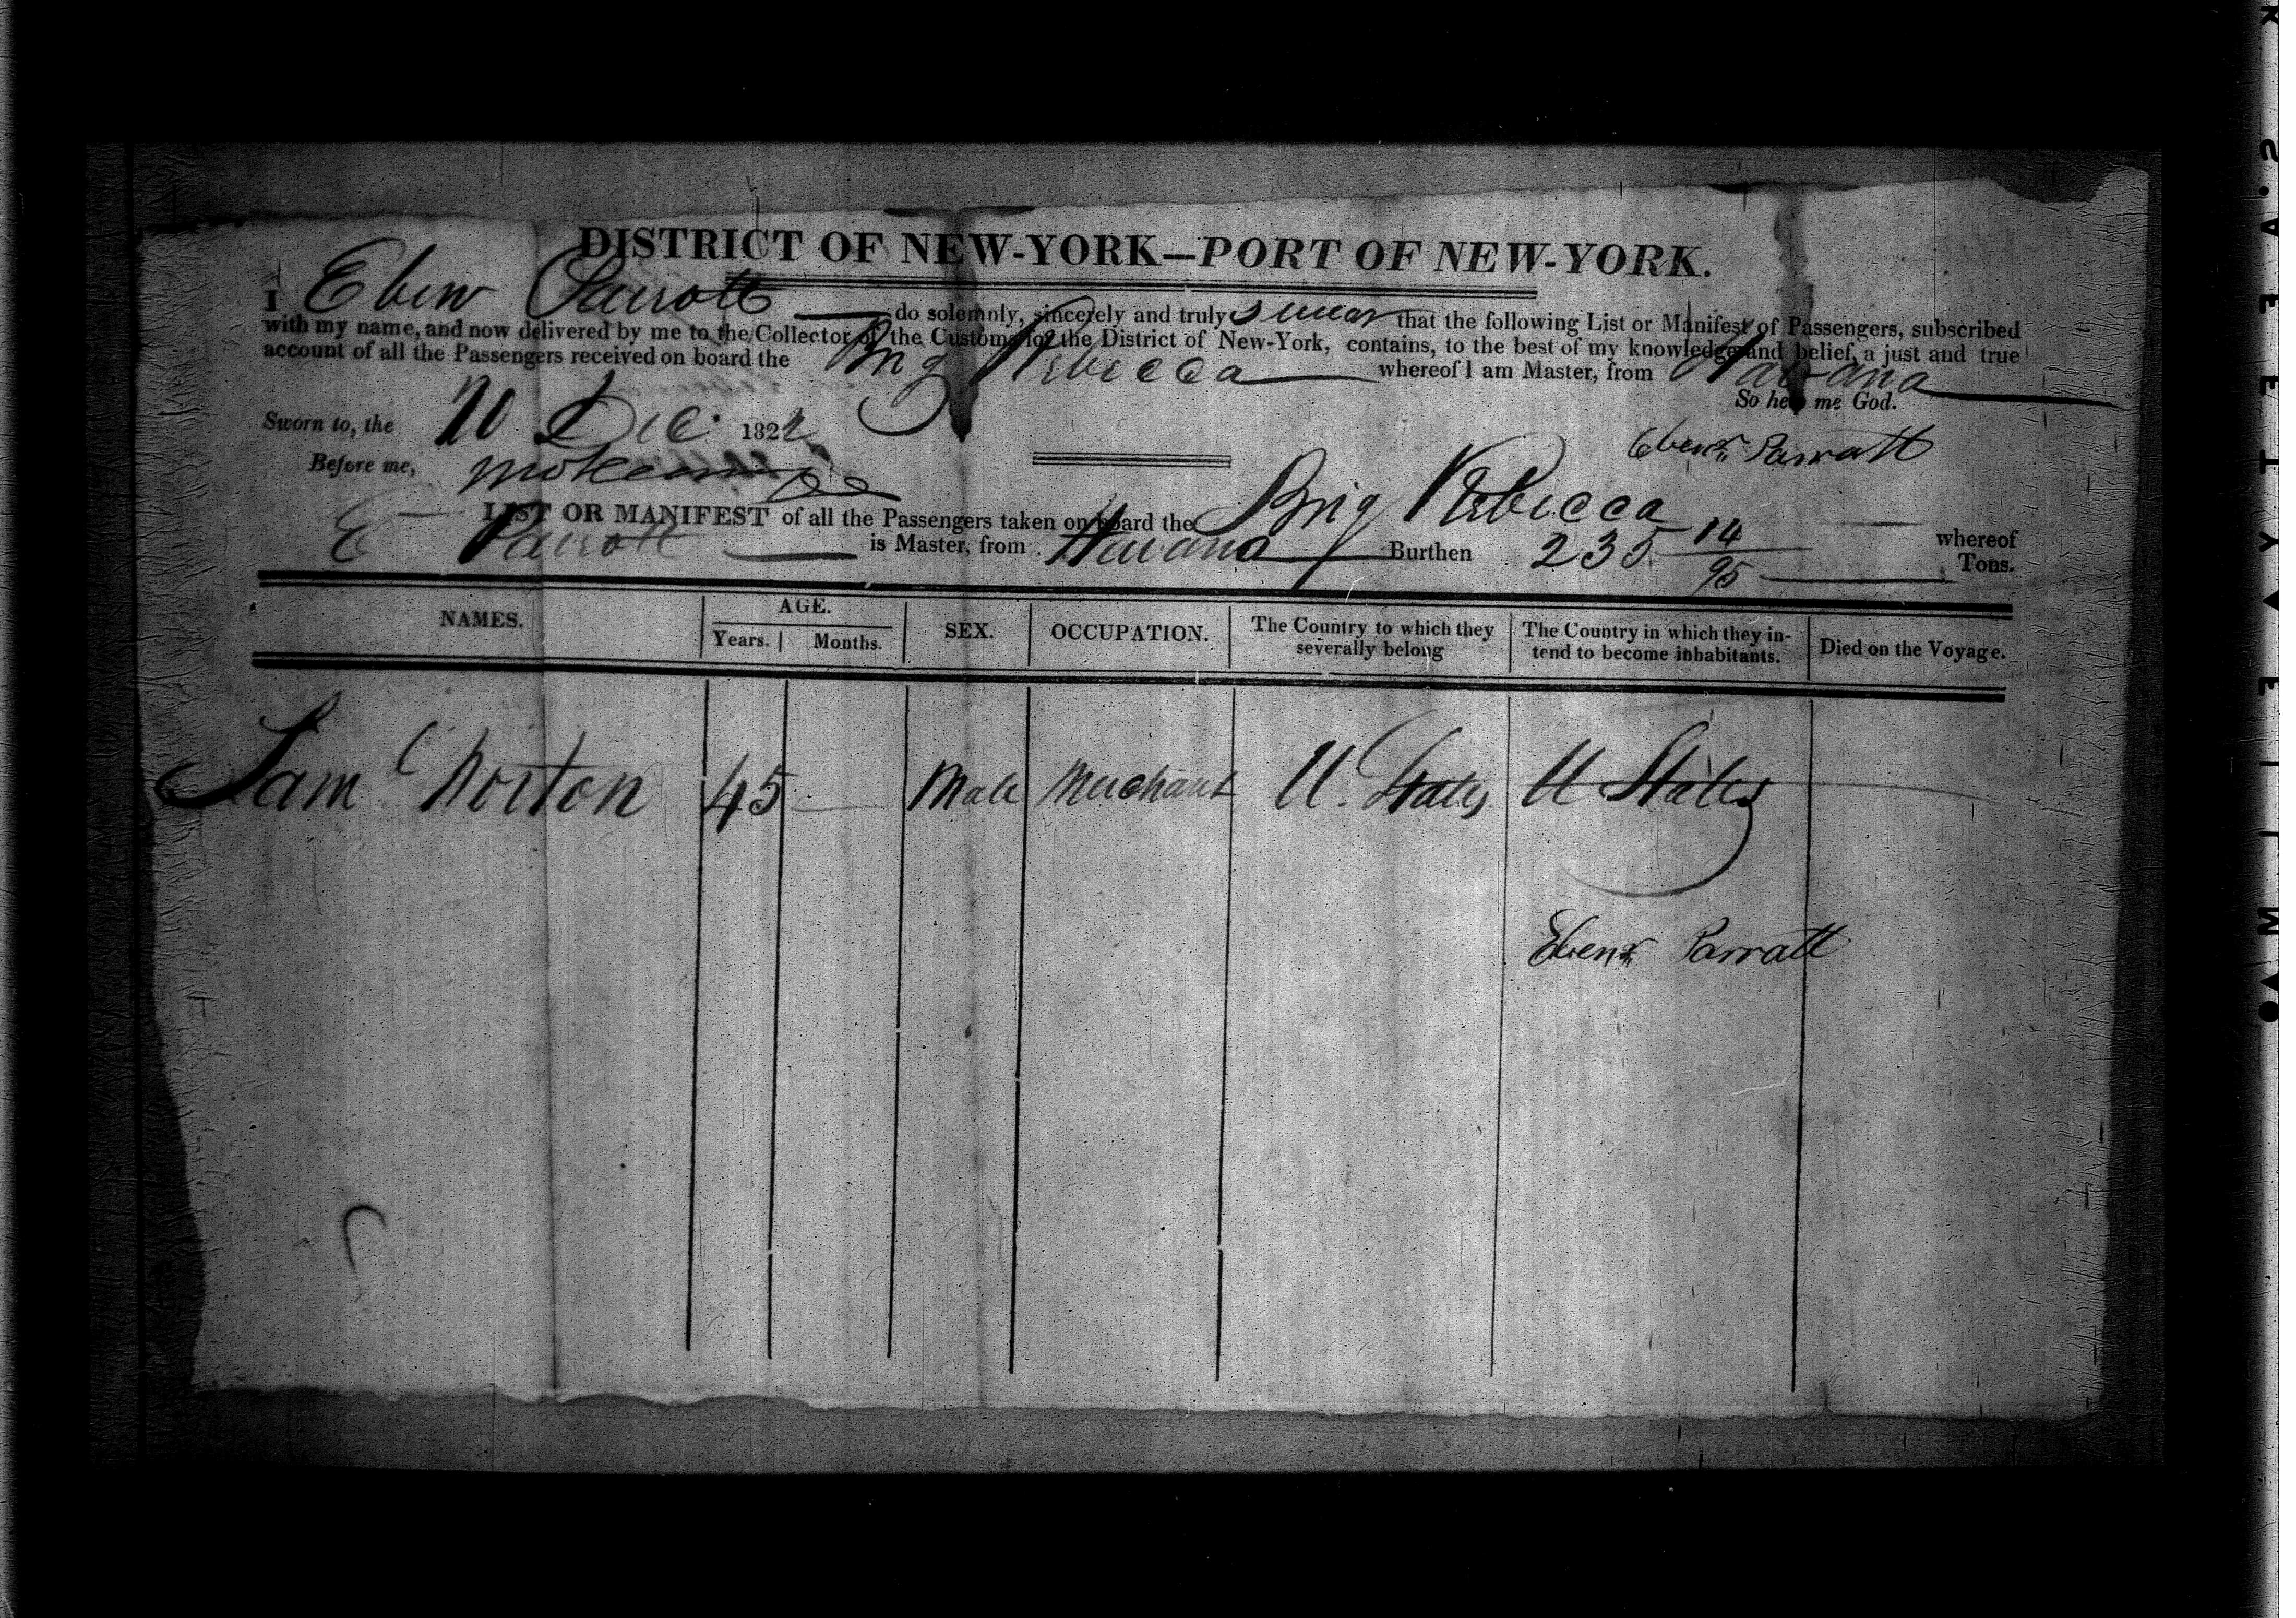 DISTRICT OF NEW-YORK—PORT OF NEW-YORK.
I Eben Parrott do solemnly, sincerely and truly swear that the following List or Manifest of Passengers, subscribed
with my name, and now delivered by me to the Collector of the Customs for the District of New-York, contains, to the best of my knowledge and belief, a just and true
account of all the Passengers received on board the Brig Rebecca whereof I am Master, from Havana
So help me God.
Sworn to, the 20 Dec. 1822
Ebenr Parratt
Before me,
LIST OR MANIFEST of all the Passengers taken on board the Brig Rebecca whereof
E Parrott is Master, from Havana Burthen 235 14/95 Tons.
NAMES. AGE. Years. Months. SEX. OCCUPATION. The Country to which they severally belong The Country in which they intend to become inhabitants. Died on the Voyage.
Sam C Norton 45 — Male Merchant U. States U States
Ebenr Parratt